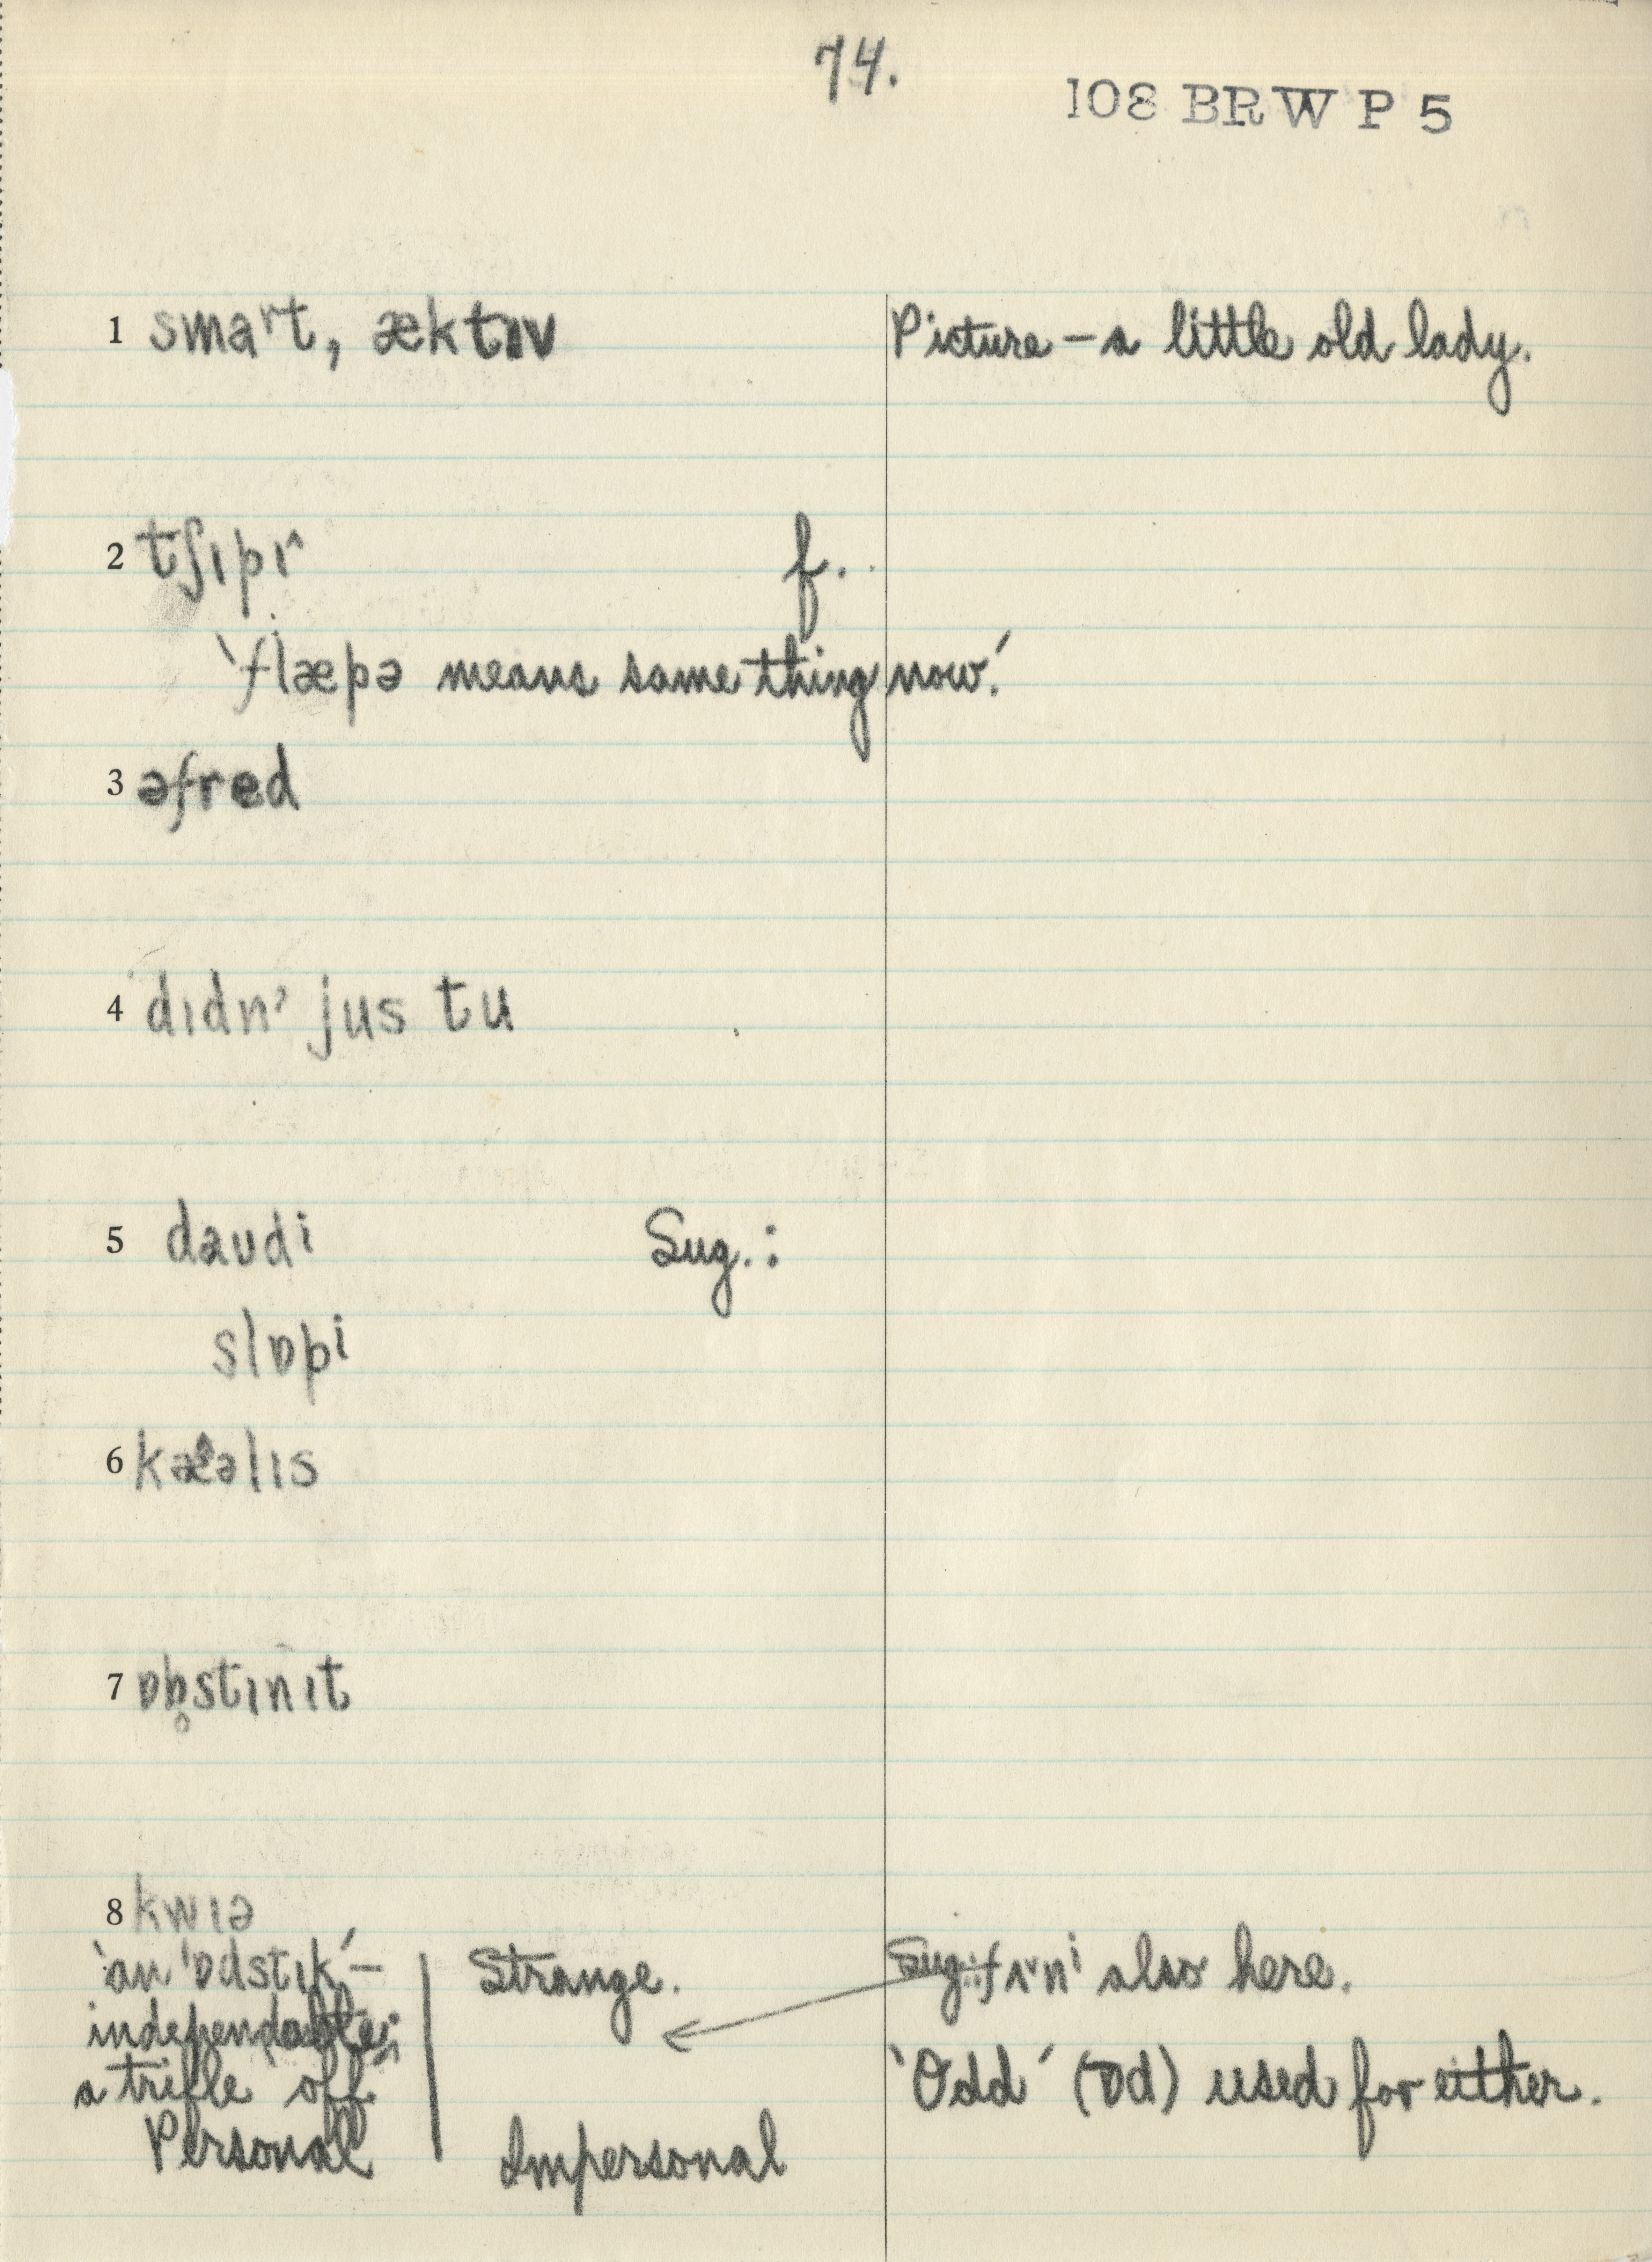 74.
108 BRW P 5
1 smaʳt, æktɪv
Picture – a little old lady.
2 tʃɪpɪʳ f.
'flæpə means same thing now.'
3 əfred
4 dɪdn' jus tu
5 daʊdi Sug.:
slɒpi
6 kæəlɪs
7 ɒb̥stɪnɪt
8 kwɪə
'an 'ɒdstɪk' –
independable;
a trifle "off"
Personal
Strange.
Impersonal
Sug.: also here.
'Odd' (ɒd) used for either.